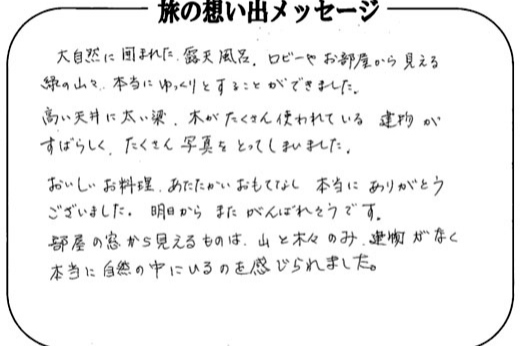 旅の想い出メッセージ
大自然に囲まれた、露天風呂。ロビーやお部屋から見える
緑の山々、本当にゆっくりとすることができました。
高い天井に太い梁、木がたくさん使われている 建物が
すばらしく、たくさん写真をとってしまいました。
おいしいお料理、あたたかいおもてなし 本当に ありがとう
ございました。明日から また がんばれそうです。
部屋の窓から見えるものは、山と木々のみ、建物がなく
本当に自然の中にいるのを感じられました。